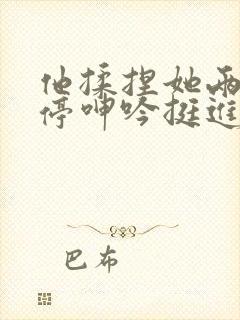 他揉捏她两
停呻吟挺进
巴布